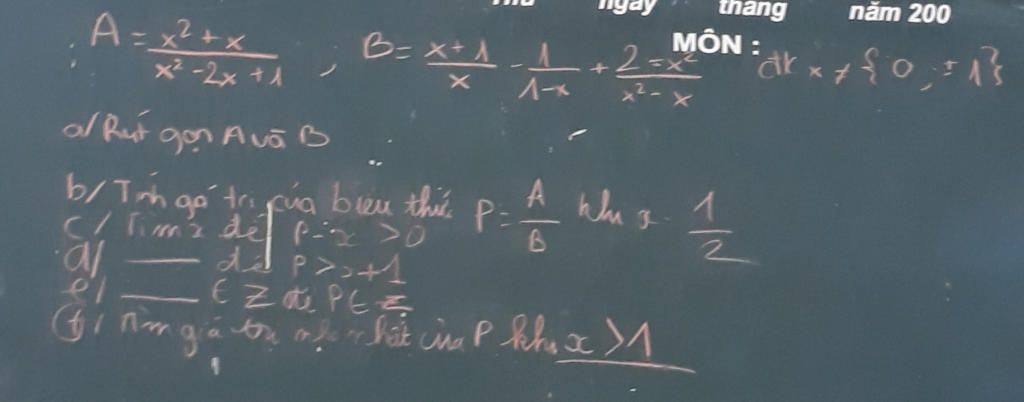 ngày tháng năm 200
MÔN :
A = \frac{x^2 + x}{x^2 - 2x + 1} ; B = \frac{x + 1}{x} - \frac{1}{1 - x} + \frac{2 - x^2}{x^2 - x} đk x ≠ {0 ; ± 1}
a/ Rút gọn A và B
b/ Tính giá trị của biểu thức P = \frac{A}{B} khi x = \frac{1}{2}
c/ Tìm x để P - x > 0
d/ —— để P > x + 1
e/ —— ∈ Z để P ∈ Z
f/ Tìm giá trị nhỏ nhất của P khi x > 1